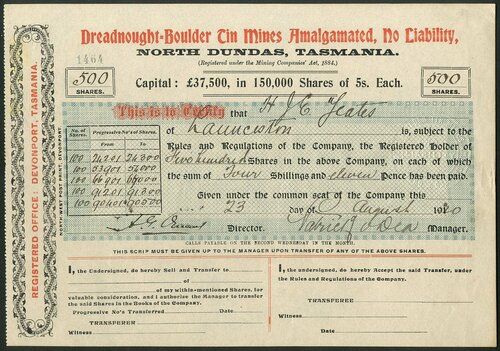 Dreadnought-Boulder Tin Mines Amalgamated, No Liability,
NORTH DUNDAS, TASMANIA.
(Registered under the Mining Companies' Act, 1884.)
1464
500 SHARES.
500 SHARES.
Capital: £37,500, in 150,000 Shares of 5s. Each.
This is to Certify that H J C Yeates
of Launceston is subject to the
Rules and Regulations of the Company, the Registered Holder of
Shares in the above Company, on each of which
the sum of Four Shillings and eleven Pence has been paid.
Given under the common seal of the Company this
23 day of August
Director.
Manager.
No. of Shares. Progressive No's of Shares.
From To
100
100
100
100
100
REGISTERED OFFICE: DEVONPORT, TASMANIA.
NORTH WEST POST PRINT, DEVONPORT
CALLS PAYABLE ON THE SECOND WEDNESDAY IN THE MONTH.
THIS SCRIP MUST BE GIVEN UP TO THE MANAGER UPON TRANSFER OF ANY OF THE ABOVE SHARES.
I, the Undersigned, do hereby Sell and Transfer to
of
of my within-mentioned Shares, for
valuable consideration, and I authorise the Manager to transfer
the said Shares in the Books of the Company.
Progressive No's Transferred Date
TRANSFERER
Witness
I, the undersigned, do hereby Accept the said Transfer, under
the Rules and Regulations of the Company.
Date
TRANSFEREE
Witness